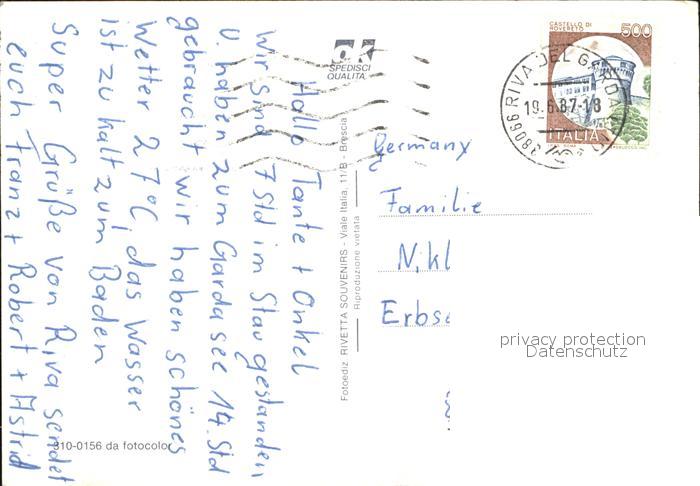 Hallo Tante + Onkel
Wir sind 7 Std im Stau gestanden
u. haben zum Gardasee 14. Std
gebraucht wir haben schönes
Wetter 27°C, das Wasser
ist zu kalt zum Baden
Super Grüße von Riva sendet
euch Franz + Robert + Astrid
310-0156 da fotocolor
SPEDISCI
QUALITÀ
Fotoediz RIVETTA SOUVENIRS - Viale Italia, 11/B - Brescia
Riproduzione vietata
CASTELLO DI
ROVERETO
500
ITALIA
38066 RIVA DEL GARDA
19.6.87-18
Germany
Familie
N. kl
Erbs
privacy protection
Datenschutz